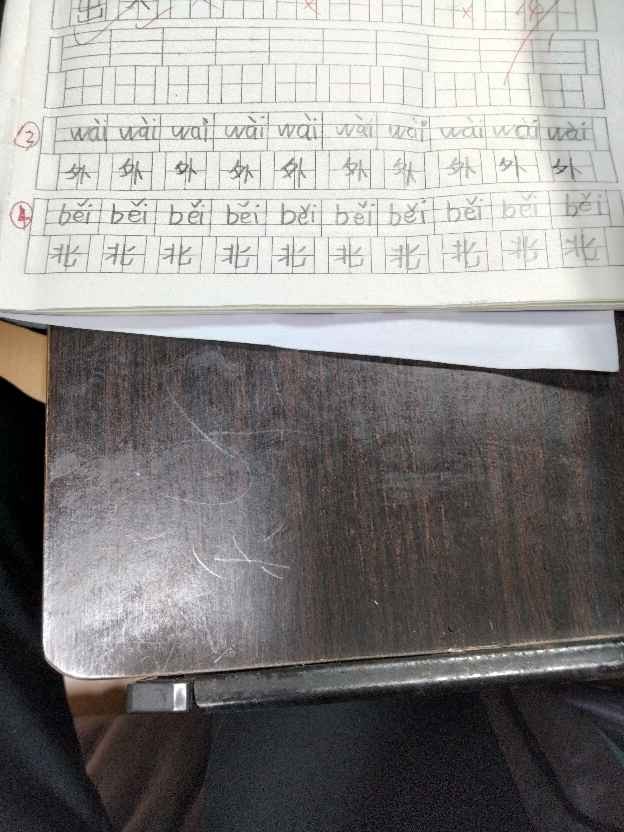 出
③ wài wài wài wài wài wài wài wài wài wài
外 外 外 外 外 外 外 外 外 外
④ běi běi běi běi běi běi běi běi běi běi
北 北 北 北 北 北 北 北 北 北